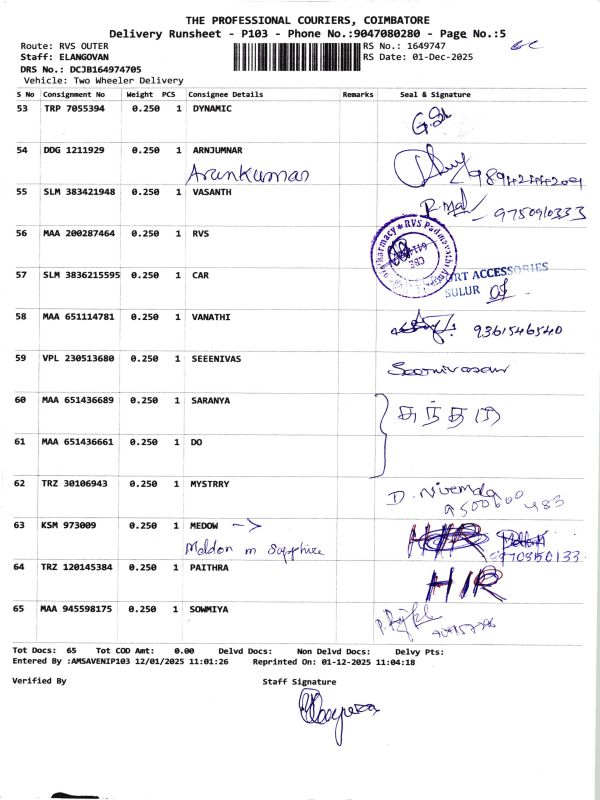 THE PROFESSIONAL COURIERS, COIMBATORE
Delivery Runsheet - P103 - Phone No.:9047080280 - Page No.:5
Route: RVS OUTER
RS No.: 1649747
Staff: ELANGOVAN
RS Date: 01-Dec-2025
DRS No.: DCJB164974705
Vehicle: Two Wheeler Delivery
S No Consignment No Weight PCS Consignee Details Remarks Seal & Signature
53 TRP 7055394 0.250 1 DYNAMIC
54 DDG 1211929 0.250 1 ARNJUMNAR
Arunkumar
55 SLM 383421948 0.250 1 VASANTH
9750910333
56 MAA 200287464 0.250 1 RVS
RVS Padmavathi
57 SLM 3836215595 0.250 1 CAR
ACCESSORIES
SULUR
58 MAA 651114781 0.250 1 VANATHI
9361546540
59 VPL 230513680 0.250 1 SEEENIVAS
Seenivasan
60 MAA 651436689 0.250 1 SARANYA
61 MAA 651436661 0.250 1 DO
62 TRZ 30106943 0.250 1 MYSTRRY
D. Nivemda
9500600483
63 KSM 973009 0.250 1 MEDOW ->
Maldon m Sapphire
HIR
64 TRZ 120145384 0.250 1 PAITHRA
HIR
65 MAA 945598175 0.250 1 SOWMIYA
Tot Docs: 65 Tot COD Amt: 0.00 Delvd Docs: Non Delvd Docs: Delvy Pts:
Entered By :AMSAVENIP103 12/01/2025 11:01:26 Reprinted On: 01-12-2025 11:04:18
Verified By Staff Signature